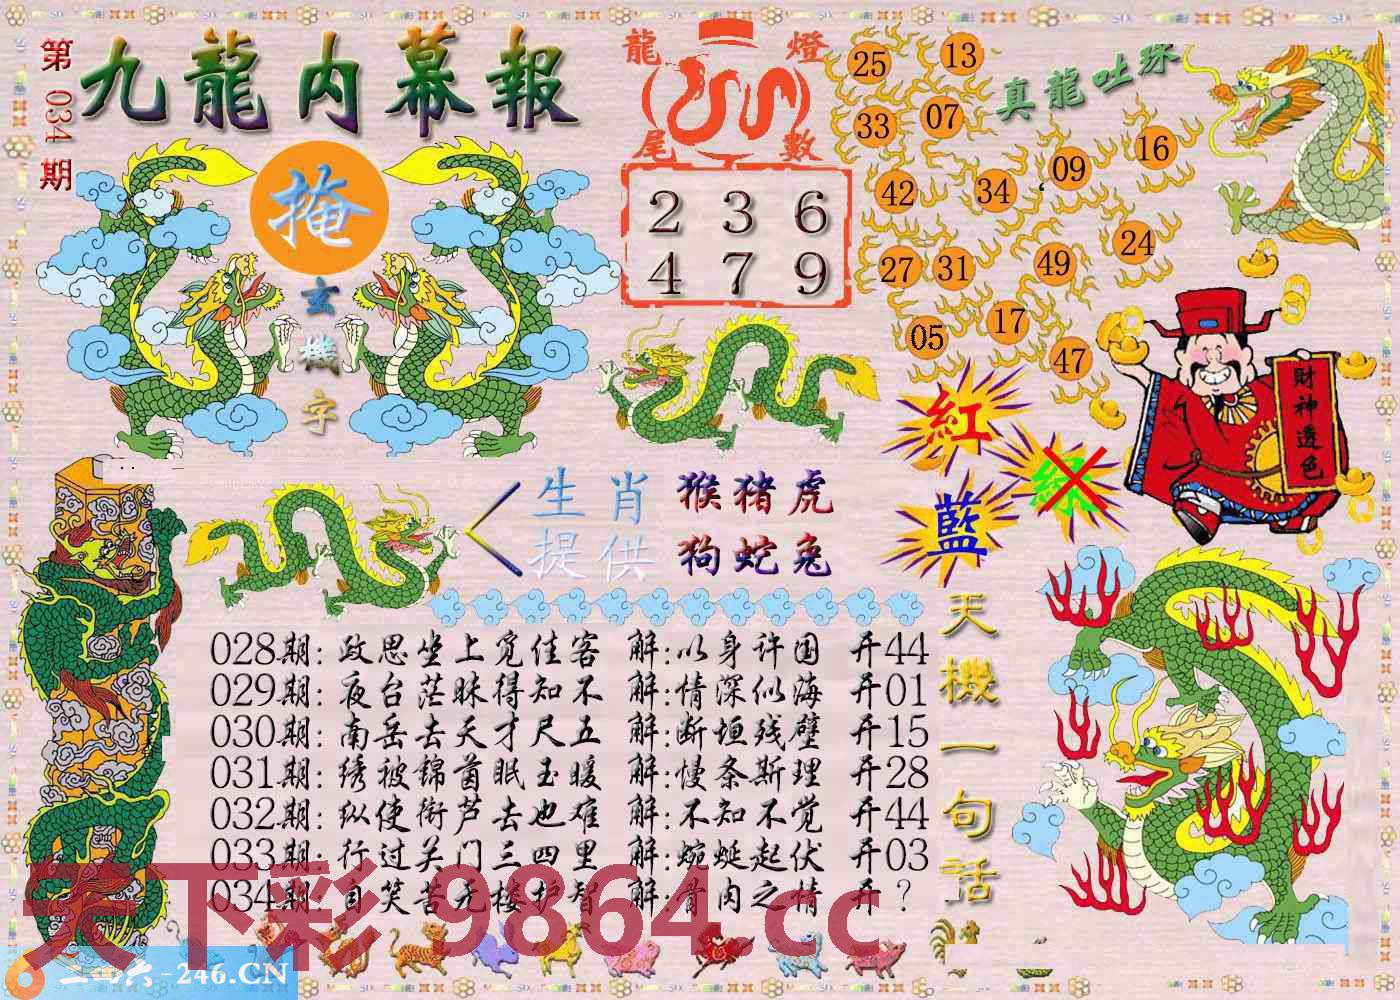 第034期
九龍内幕報
掩
玄機字
龍燈尾數
2 3 6
4 7 9
真龍吐珠
25 13
33 07
42 34 09 16
27 31 49 24
05 17 47
紅
綠
藍
財神透色
生肖提供
猴猪虎
狗蛇兔
天機一句話
028期: 政思坐上觅佳客 解:以身许国 开44
029期: 夜台茫昧得知不 解:情深似海 开01
030期: 南岳去天才尺五 解:断垣残壁 开15
031期: 绣被锦茵眠玉暖 解:慢条斯理 开28
032期: 纵使衔芦去也难 解:不知不觉 开44
033期: 行过关门三四里 解:蜿蜒起伏 开03
034期: 自笑苦无楼护智 解:骨肉之情 开？
天下彩 9864.cc
二四六-246.CN